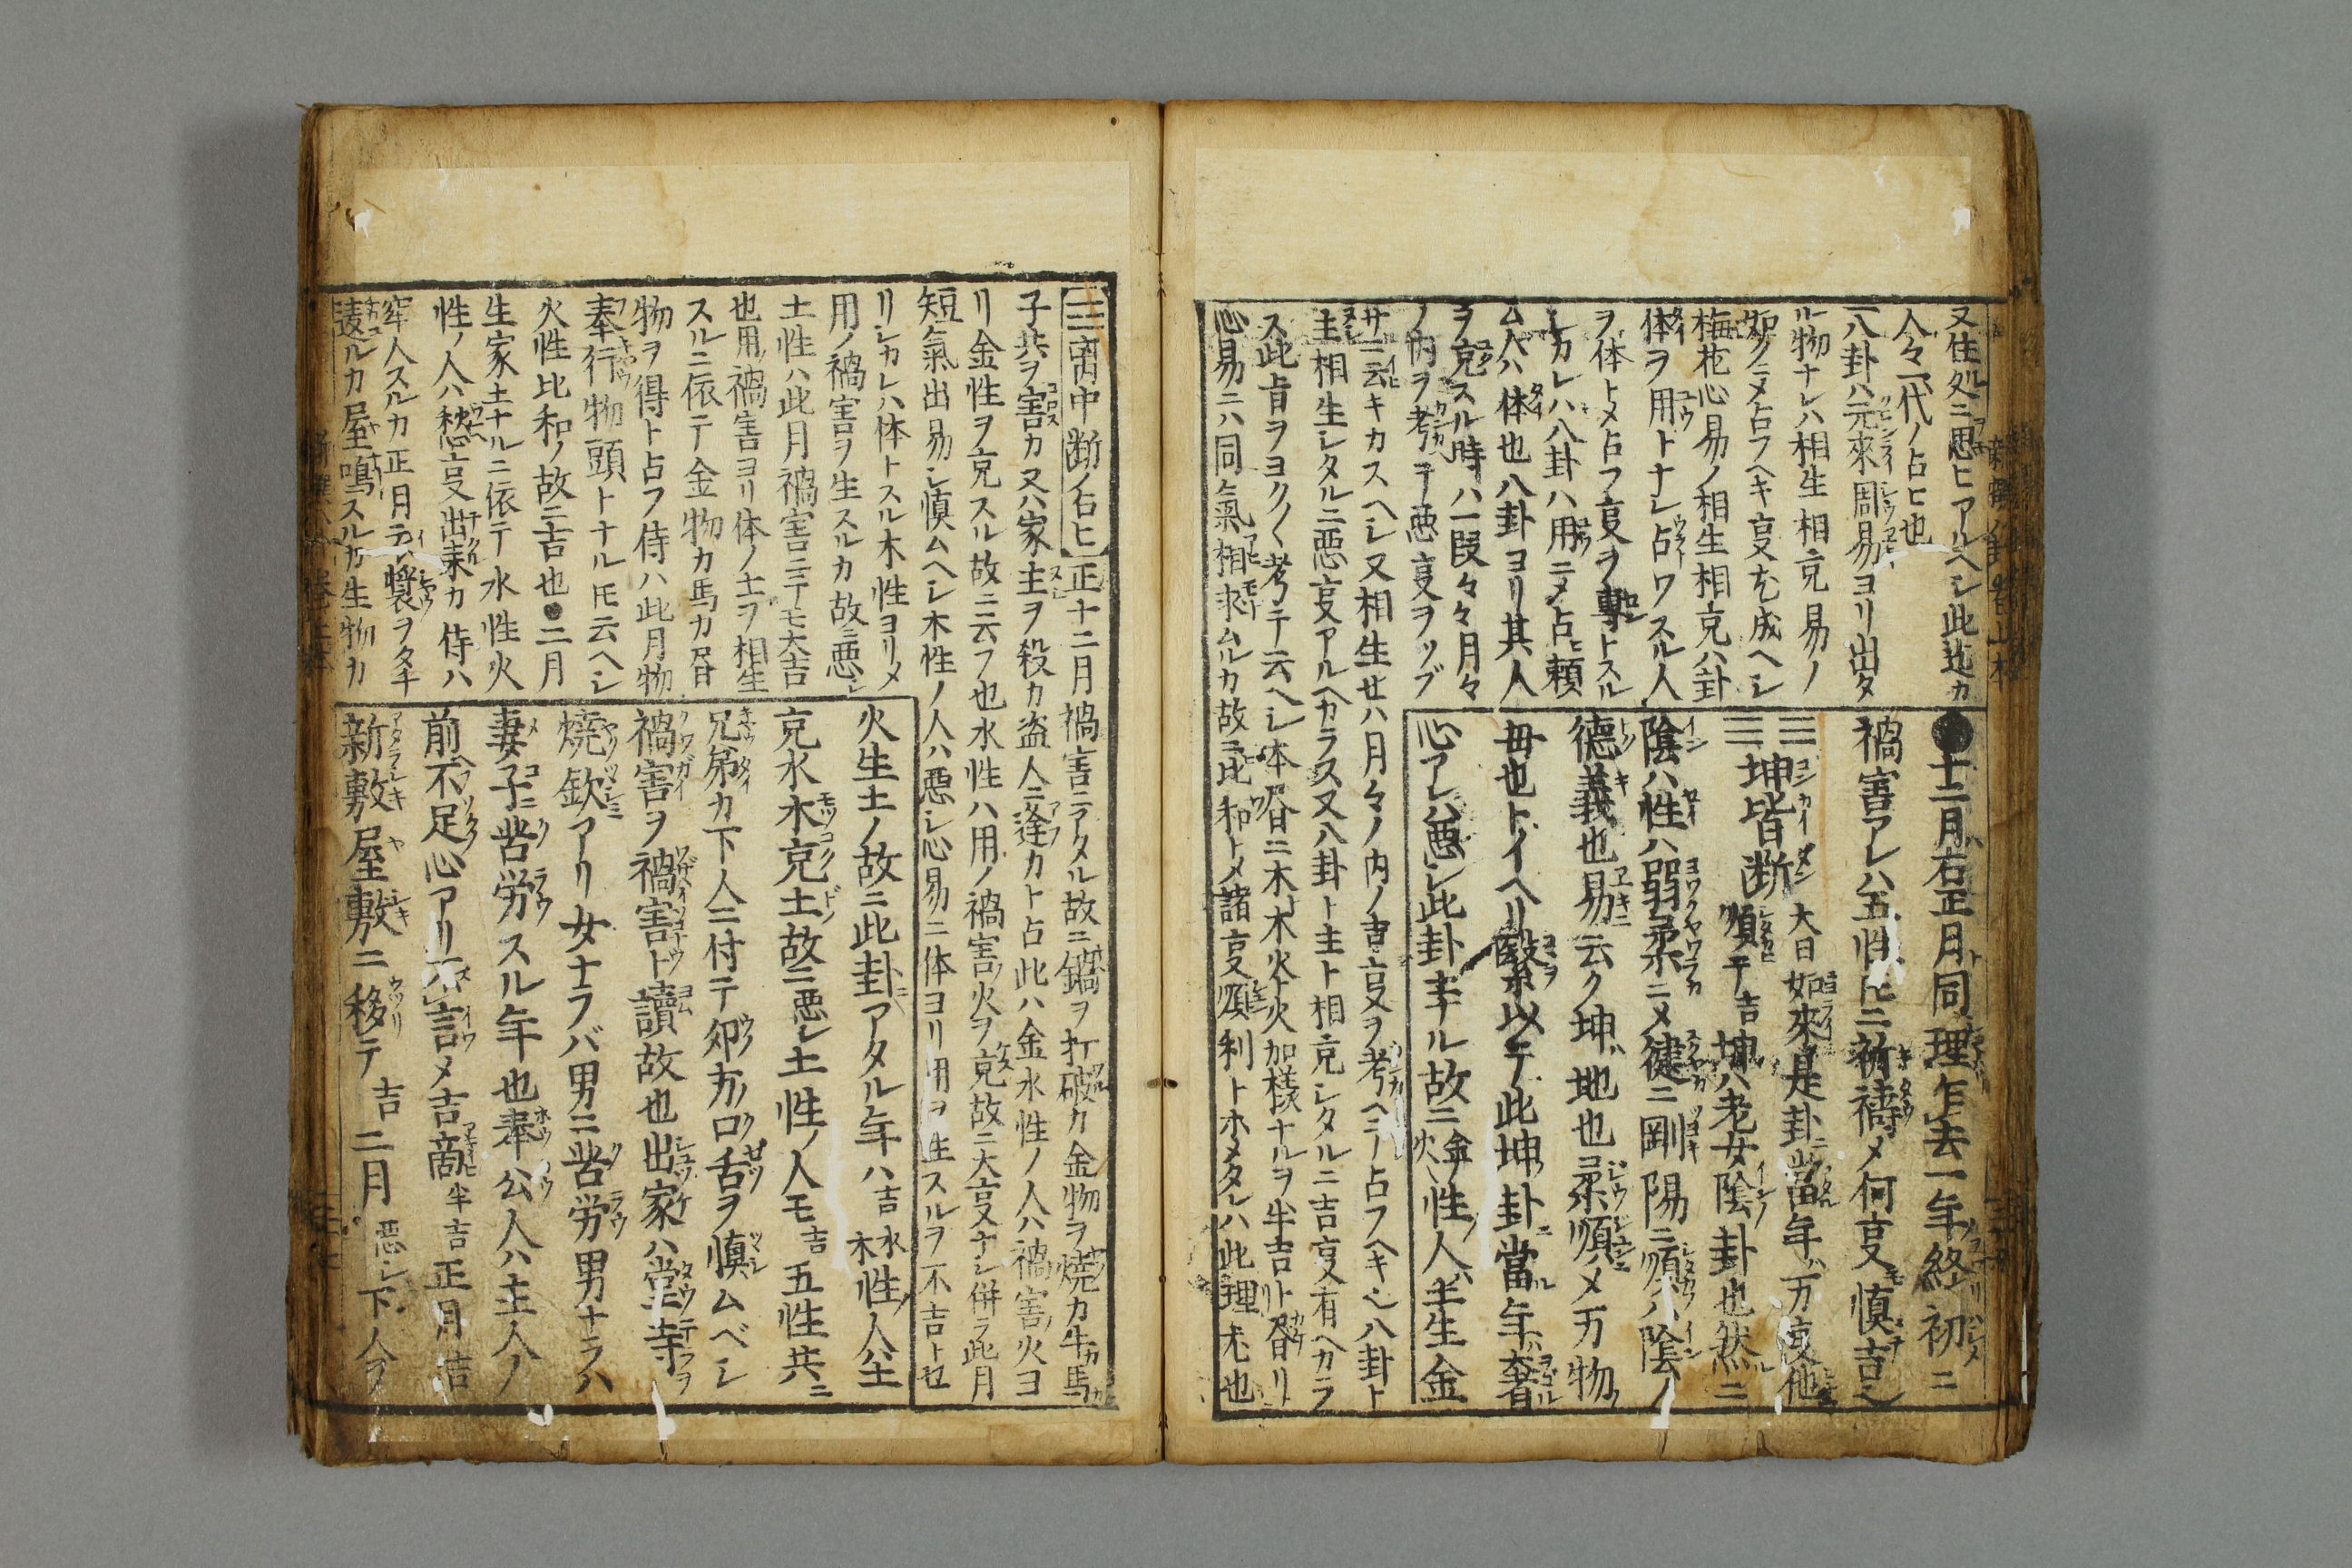 又住処ニ思ヒアルヘシ此辻カ
人々一代ノ占ヒ也
八卦ハ元來周易ヨリ出タ
ル物ナレハ相生相克易ノ
如クニメ占フヘキ㕝尤成ヘシ
梅花心易ノ相生相克ハ卦
体ヲ用トナシ占ワスル人
ヲ体トメ占フ㕝ヲ専トスル
シカレハ八卦ハ用ニメ占ヒ頼
ム人ハ体也八卦ヨリ其人
ヲ克スル時ハ一段々々月々
ノ内ヲ考カヱテ悪㕝ヲツブ
サニ云キカスヘシ又相生せハ月々ノ内ノ吉㕝ヲ考ヘテ占フヘキ也八卦ト
主相生シタルニ悪㕝アルヘカラス又八卦ト主ト相克シタルニ吉㕝有ヘカラ
ス此㫖ヲヨク〱考テ云ヘシ本暦ニ木ト木火ト火加様ナルヲ半吉トアリ
心易ニハ同氣相求ムルカ故ニ比和トメ諸㕝順利トホメタレハ此理尤也
●十二月ハ右正月ト同理乍去一年終初ニ
禍害アレハ五性トモニ祈禱メ何㕝モ慎吉シ
☷坤皆断 大日如來是卦ニ當年ハ万㕝他
順テ吉 坤ハ老女陰ノ卦也然ルニ
陰ハ性ハ弱柔ニメ健ニ剛陽ニ順ハ陰ノ
徳義也易ニ云ク坤ハ地也柔順メ万物
毋也トイヘリ此以テ此坤卦ニ當ル年ハ奢
心アレハ悪シ此卦土ナル故ニ金火ノ性ノ人ハ土生金
☲離中断ノ占ヒ 正十二月禍害ニアタル故ニ鍋ヲ打破カ金物ヲ焼カ牛馬カ
子共ヲ害カ又ハ家主ヲ殺カ盗人ニ逢カト占此ハ金水性ノ人ハ禍害ノ火ヨ
リ金性ヲ克スル故ニ云フ也水性ハ用ノ禍害ノ火ヲ克故ニ大㕝ナシ併ラ此月
短氣出易シ慎ムヘシ木性ノ人ハ悪シ心易ニ体ヨリ用ヲ生スルヲ不吉トせ
リシカレハ体トスル木性ヨリメ
用ノ禍害ヲ生スルカ故ニ悪シ
土性ハ此月禍害ニテモ大吉
也用ノ禍害ヨリ体ノ土ヲ相生
スルニ依テ金物カ馬カ
物ヲ得ト占フ侍ハ此月物
奉行物頭トナルトモ云ヘシ
火性比和ノ故ニ吉也●二月
生家土ナルニ依テ水性火
性ノ人ハ愁㕝出來カ侍ハ
牢人スルカ正月ニ
違ルカ屋鳴スルカ生物カ
火生土ノ故ニ此卦ニアタル年ハ吉水木性ノ人ハ土
克水木克土故ニ悪シ土性ノ人モ吉五性共ニ
兄弟カ下人ニ付テ卯方ノ口舌ヲ慎ムベシ
禍害ヲ禍害ト讀故也出家ハ堂寺ヲ
焼歎アリ女ナラバ男ニ苦労男ナラハ
妻子ニ苦労スル年也奉公人ハ主人ノ
前不足心アリ不言メ吉商半吉正月吉
新敷屋敷ニ移テ吉二月悪シ下人ヲ